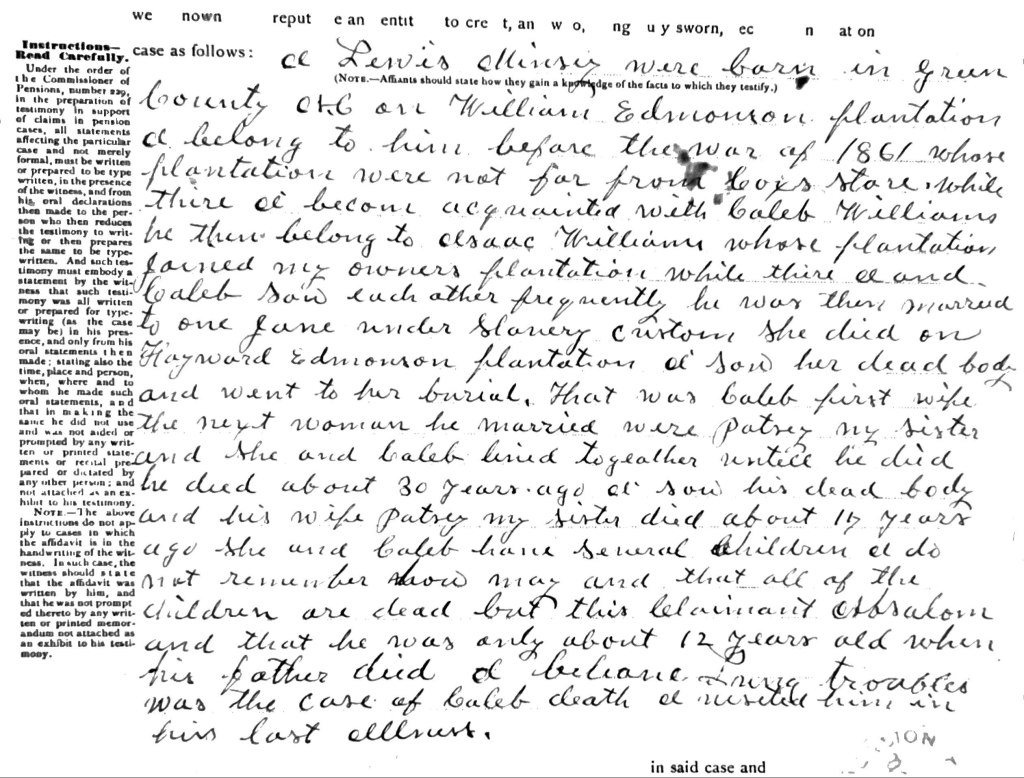 we nown reput e an entit to cre t, an w o, ng u y sworn, ec n at on
case as follows:
(NOTE.—Affiants should state how they gain a knowledge of the facts to which they testify.)
Instructions—
Read Carefully.
Under the order of
the Commissioner of
Pensions, number 229,
in the preparation of
testimony in support
of claims in pension
cases, all statements
affecting the particular
case and not merely
formal, must be written
or prepared to be type
written, in the presence
of the witness, and from
his oral declarations
then made to the per-
son who then reduces
the testimony to writ-
ing or then prepares
the same to be type-
written. And such tes-
timony must embody a
statement by the wit-
ness that such testi-
mony was all written
or prepared for type-
writing (as the case
may be) in his pres-
ence, and only from his
oral statements then
made; stating also the
time, place and person,
when, where and to
whom he made such
oral statements, and
that in making the
same he did not use
and was not aided or
prompted by any writ-
ten or printed state-
ments or recital pre-
pared or dictated by
any other person; and
not attached as an ex-
hibit to his testimony.
NOTE.—The above
instructions do not ap-
ply to cases in which
the affidavit is in the
handwriting of the wit-
ness. In such case, the
witness should state
that the affidavit was
written by him, and
that he was not prompt
ed thereto by any writ-
ten or printed memor-
andum not attached as
an exhibit to his testi-
mony.
I Lewis were born in Green
County N.C on William Edmonson plantation
I belong to him before the war of 1861 whose
plantation were not far from Coxs Store. while
there I becom acquainted with Caleb Williams
he then belong to Isaac Williams whose plantation
Joined my owners plantation while there I and
Caleb Sow each other frequently he was then married
to one Jane under Slavery custom She died on
Hayward Edmonson plantation I sow her dead body
and went to her burial. That was Caleb first wife
the next woman he married were Patsey my sister
and She and Caleb lived togeather untill he died
he died about 30 years ago I sow his dead body
and his wife Patsey my sister died about 17 years
ago She and Caleb have Several Children I do
not remember how may and that all of the
children are dead but this Claimant Absalom
and that he was only about 12 years old when
his father died I believe Lung troubles
was the case of Caleb death I visited him in
his last Illness.
in said case and